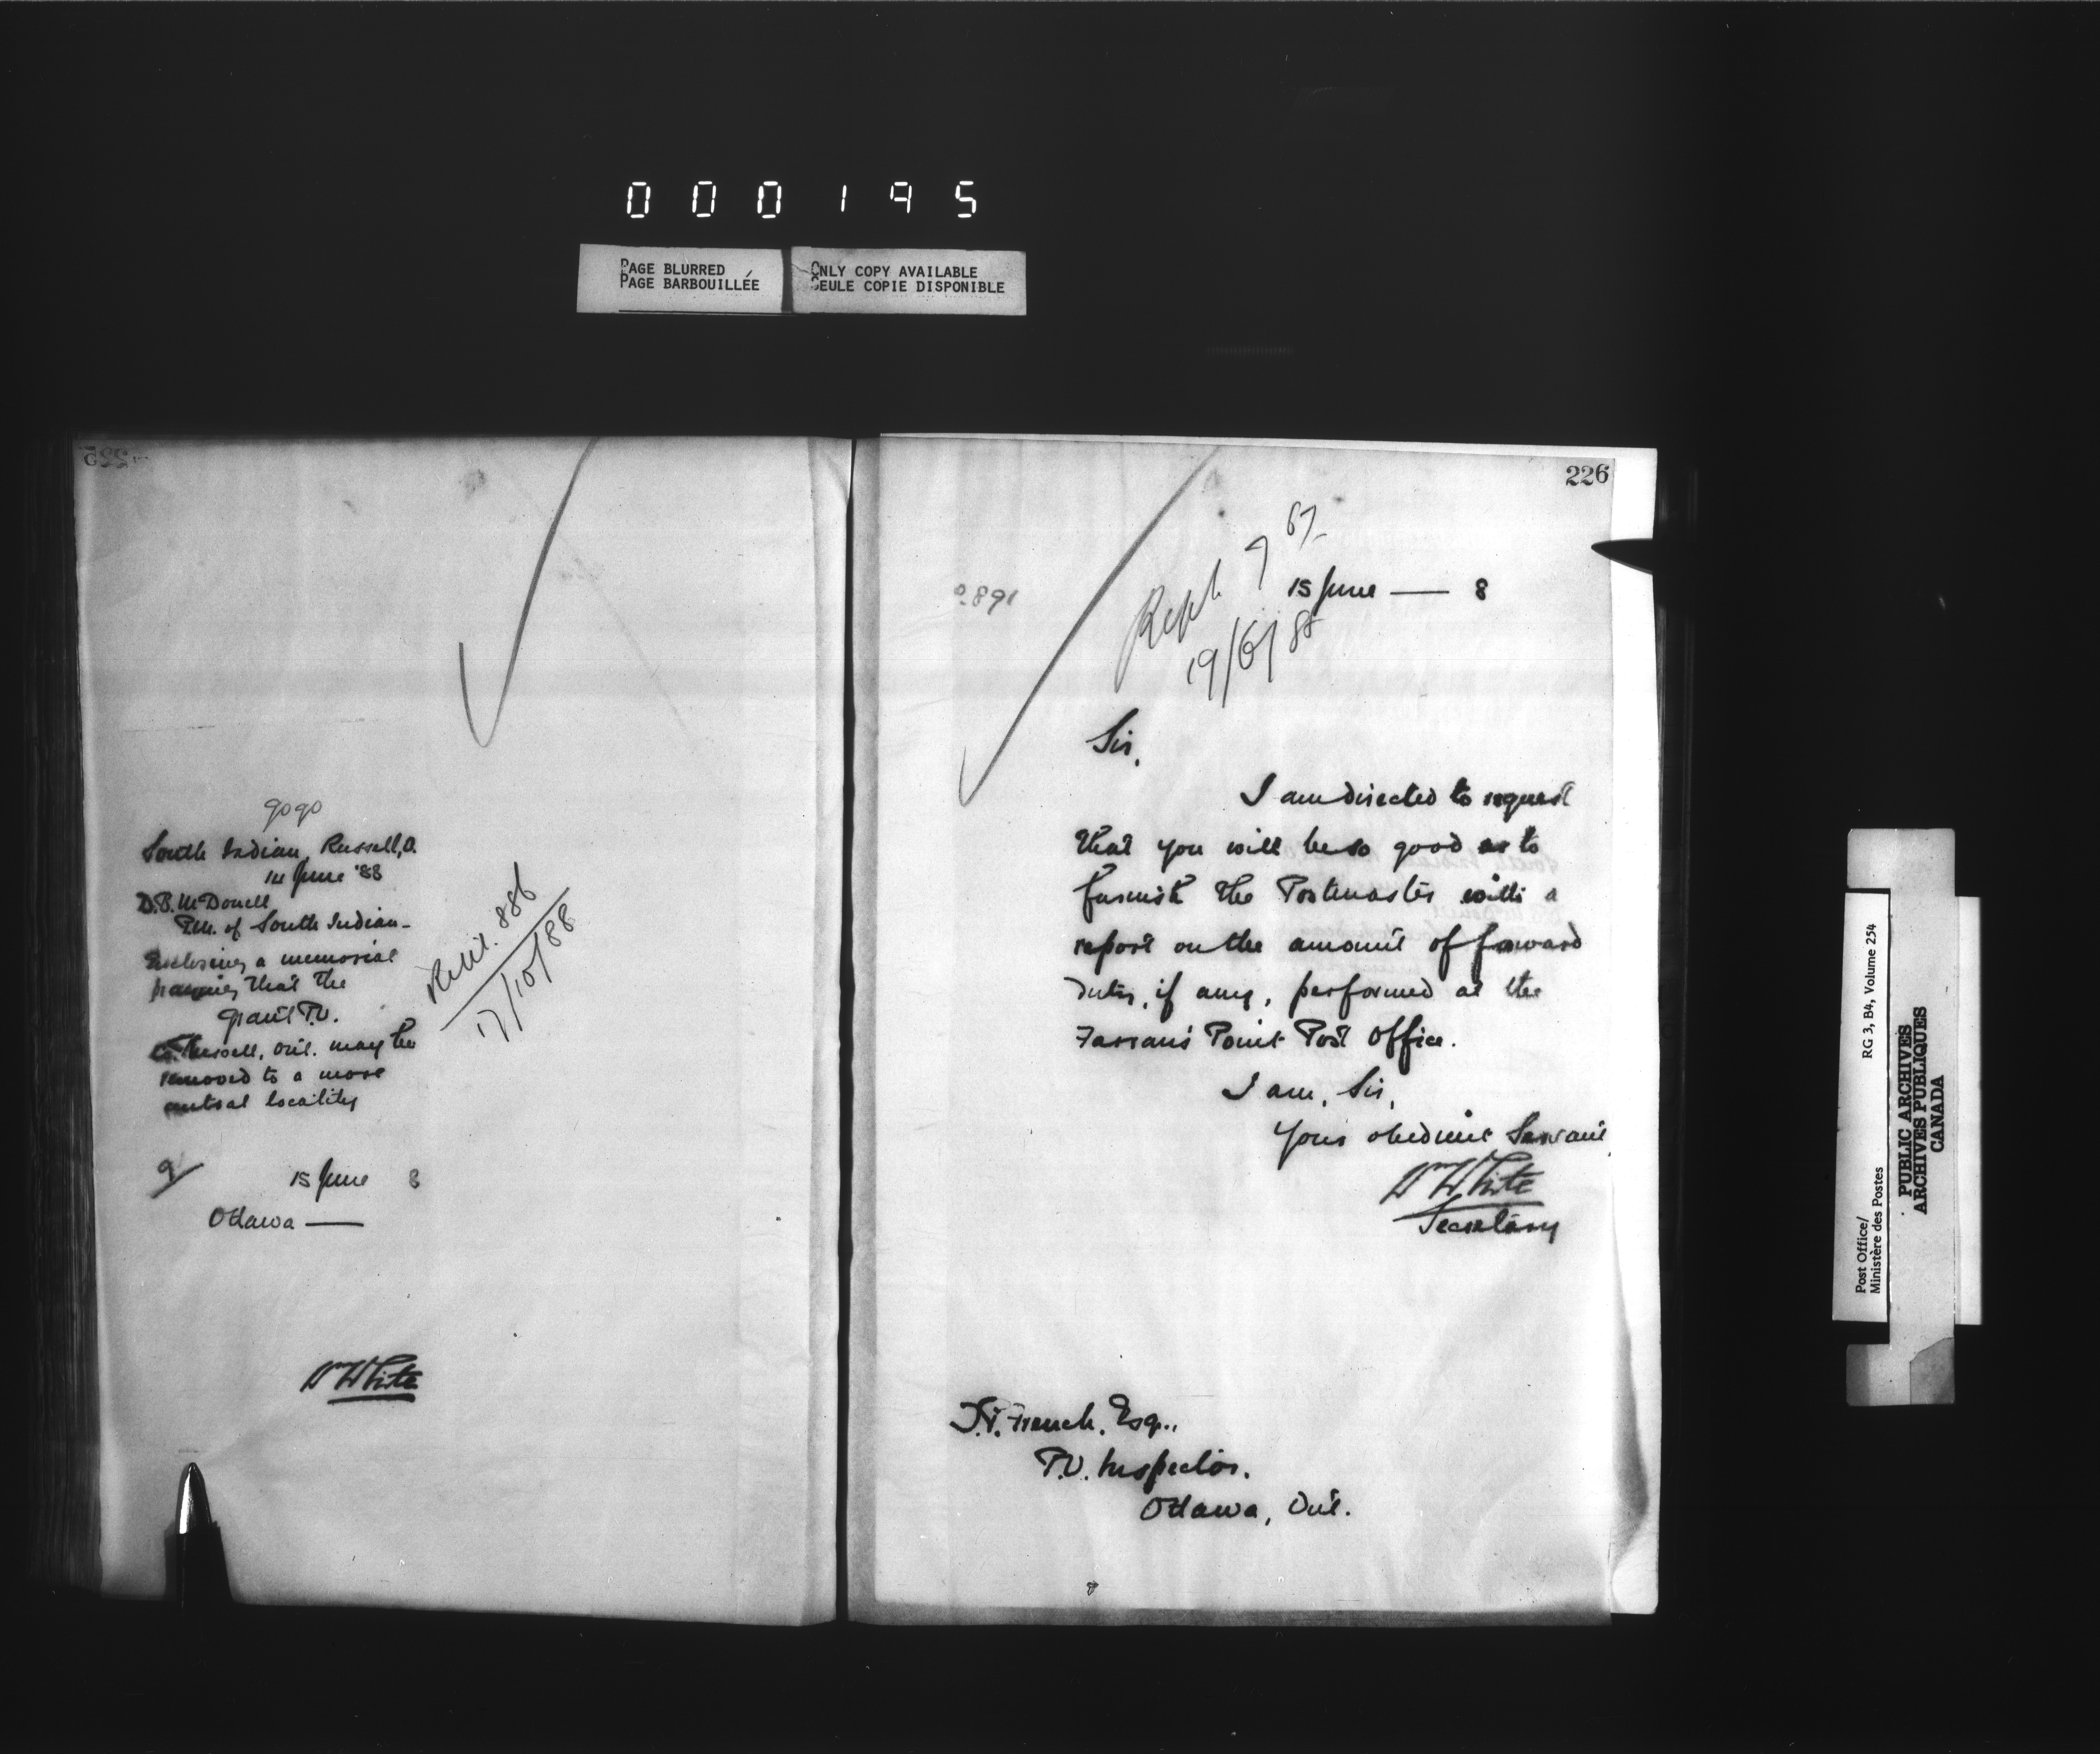 000195
PAGE BLURRED
PAGE BARBOUILLÉE
ONLY COPY AVAILABLE
SEULE COPIE DISPONIBLE
9090
South Indian, Russell, O.
14 June '88
D.B. McDonell
P.M. of South Indian -
Enclosing a memorial
praying that the
Grant P.O.
Co. Russell, Ont. may be
removed to a more
central locality
15 June 8
Ottawa —
Wm White
886
17/10/88
226
891
15 June — 8
19/6/88
Sir,
I am directed to request
that you will be so good as to
furnish the Postmaster with a
report on the amount of forward
duty, if any, performed at the
Farran's Point Post Office.
I am, Sir,
Your obedient Servant,
Wm White
Secretary
T.P. French, Esq.,
P.O. Inspector,
Ottawa, Ont.
Post Office/
Ministère des Postes
RG 3, B4, Volume 254
PUBLIC ARCHIVES
ARCHIVES PUBLIQUES
CANADA